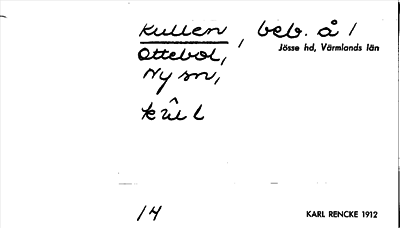 Kullen, beb. å 1
Ottebol,
Jösse hd, Värmlands län
Ny sn,
kûl
14
KARL RENCKE 1912